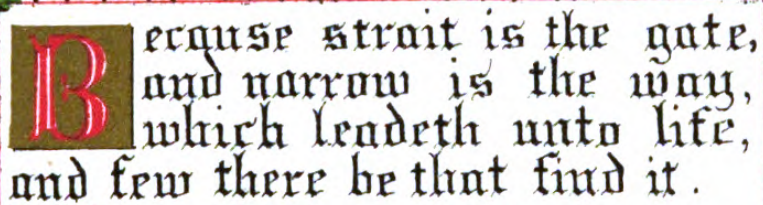 Because strait is the gate,
and narrow is the way,
which leadeth unto life,
and few there be that find it.